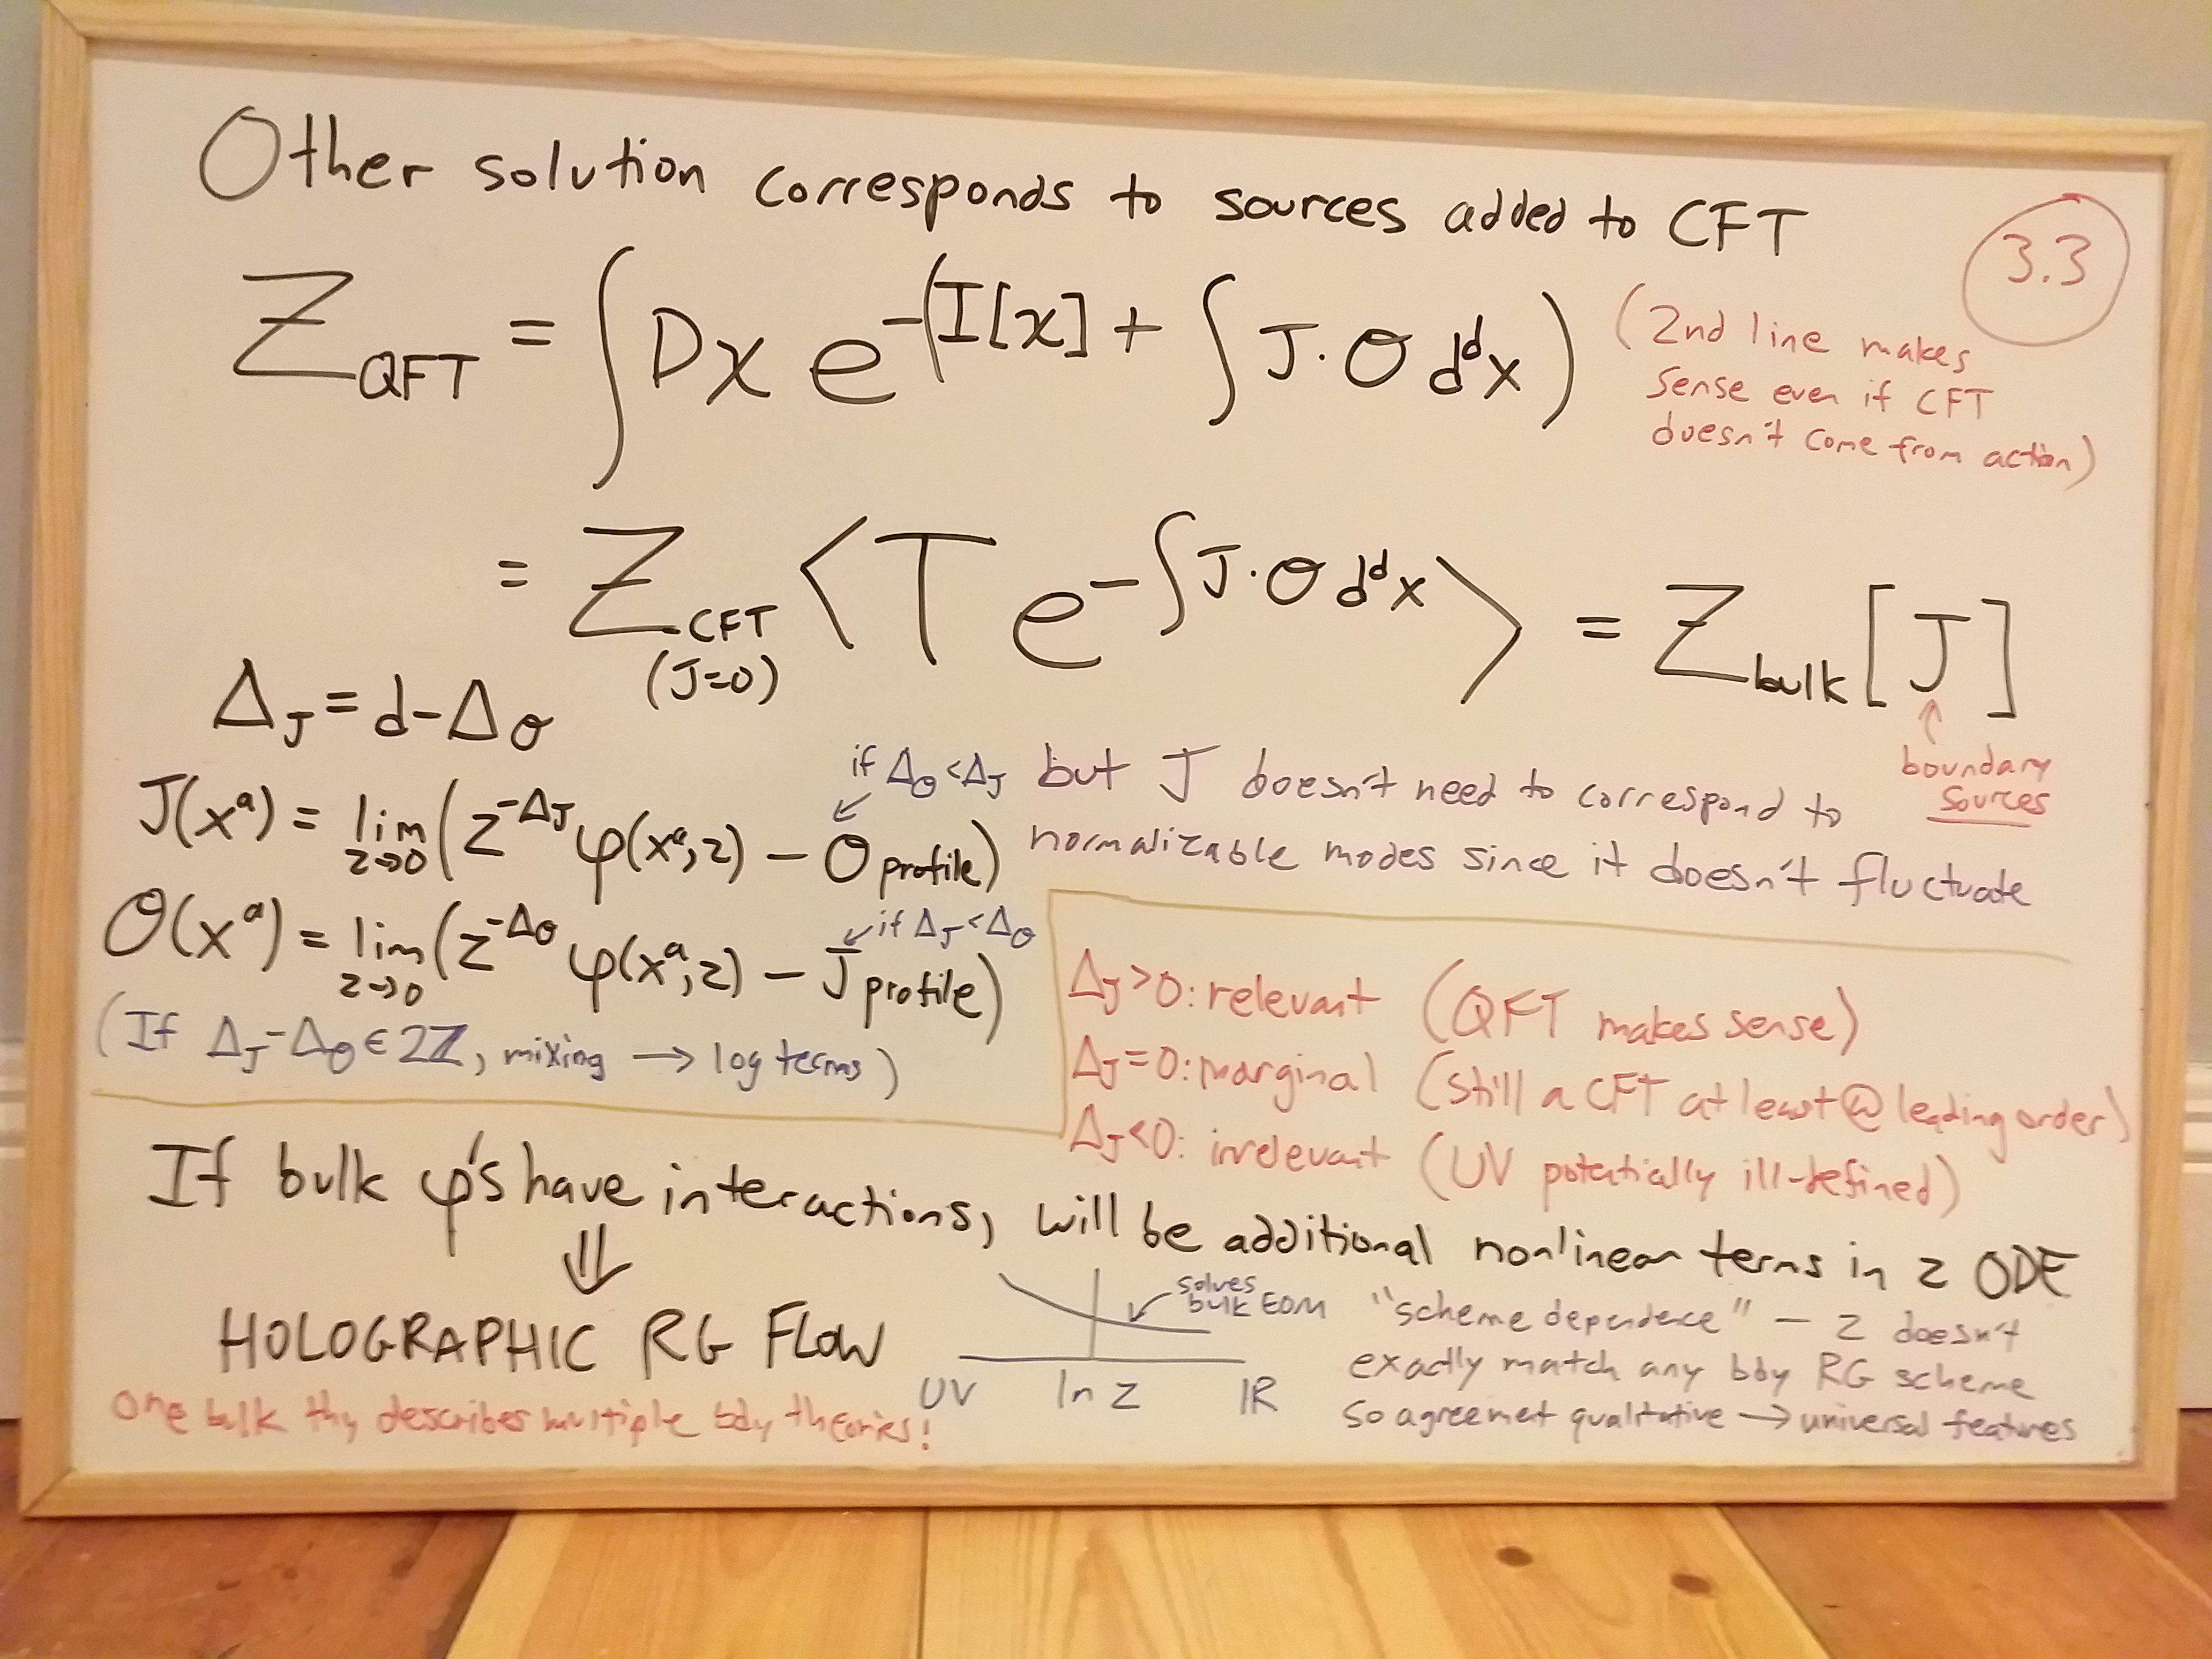 Other solution corresponds to sources added to CFT
3.3
Z_QFT = ∫ Dχ e^{-(I[χ] + ∫ J·O d^d x)}
(2nd line makes
sense even if CFT
doesn't come from action)
= Z_CFT (J=0) ⟨T e^{-∫ J·O d^d x}⟩ = Z_bulk[J]
↑
boundary
sources
Δ_J = d-Δ_O
if Δ_O < Δ_J
J(x^a) = lim_{z→0} (z^{-Δ_J} φ(x^a, z) − O_profile)
but J doesn't need to correspond to
normalizable modes since it doesn't fluctuate
if Δ_J < Δ_O
O(x^a) = lim_{z→0} (z^{-Δ_O} φ(x^a, z) − J_profile)
(If Δ_J - Δ_O ∈ 2ℤ, mixing → log terms)
Δ_J > 0: relevant (QFT makes sense)
Δ_J = 0: marginal (still a CFT at least @ leading order)
Δ_J < 0: irrelevant (UV potentially ill-defined)
If bulk φ's have interactions, will be additional nonlinear terms in z ODE
⇓
HOLOGRAPHIC RG FLOW
One bulk thy describes multiple bdy theories!
solves
bulk EOM
UV ln z IR
"scheme dependence" — z doesn't
exactly match any bdy RG scheme
so agreement qualitative → universal features